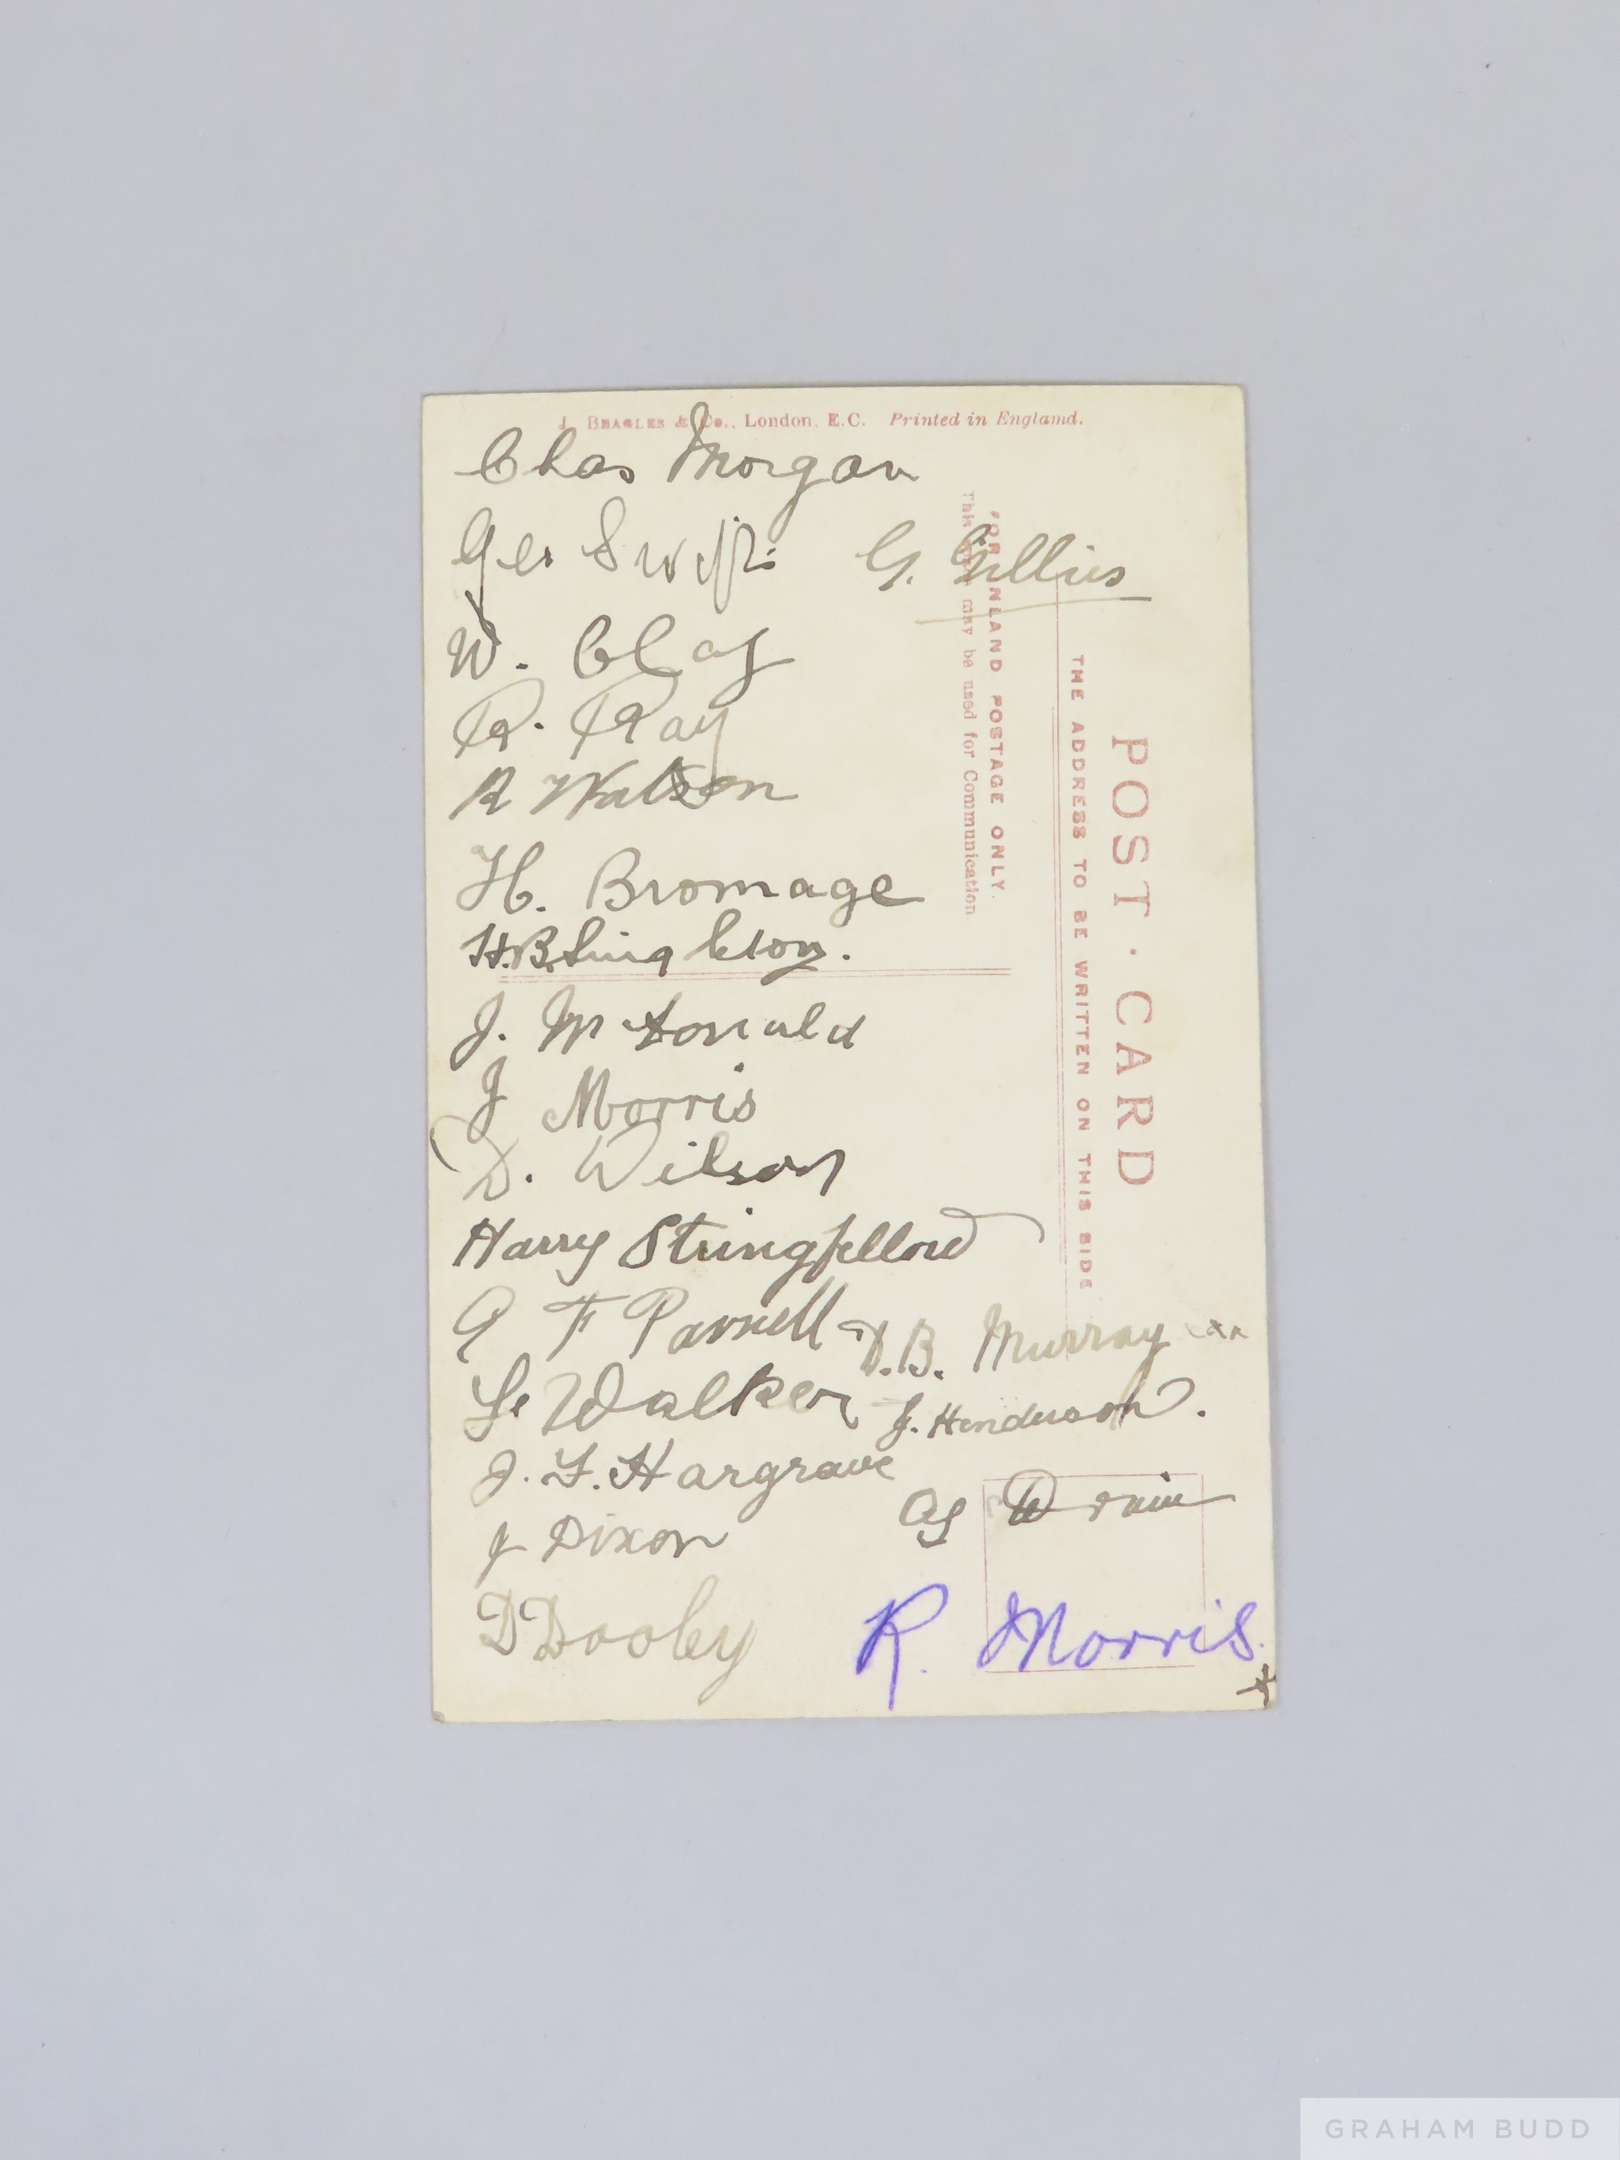 J. BEAGLES & Co., London, E.C. Printed in England.
Chas Morgan
Geo Swift
G. Gillies
W. Clay
R. Ray
R Watson
H. Bromage
H.B. Singleton.
J. McDonald
J Morris
D. Wilson
Harry Stringfellow
G F Parnell
D.B. Murray
Walker
J. Henderson.
J. F. Hargrave
J Dixon
D Dooley
R. Morris.
POST · CARD
THE ADDRESS TO BE WRITTEN ON THIS SIDE
FOR INLAND POSTAGE ONLY.
This may be used for Communication
GRAHAM BUDD